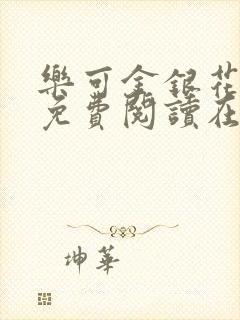 樂可金銀花
免費閱讀在
坤華